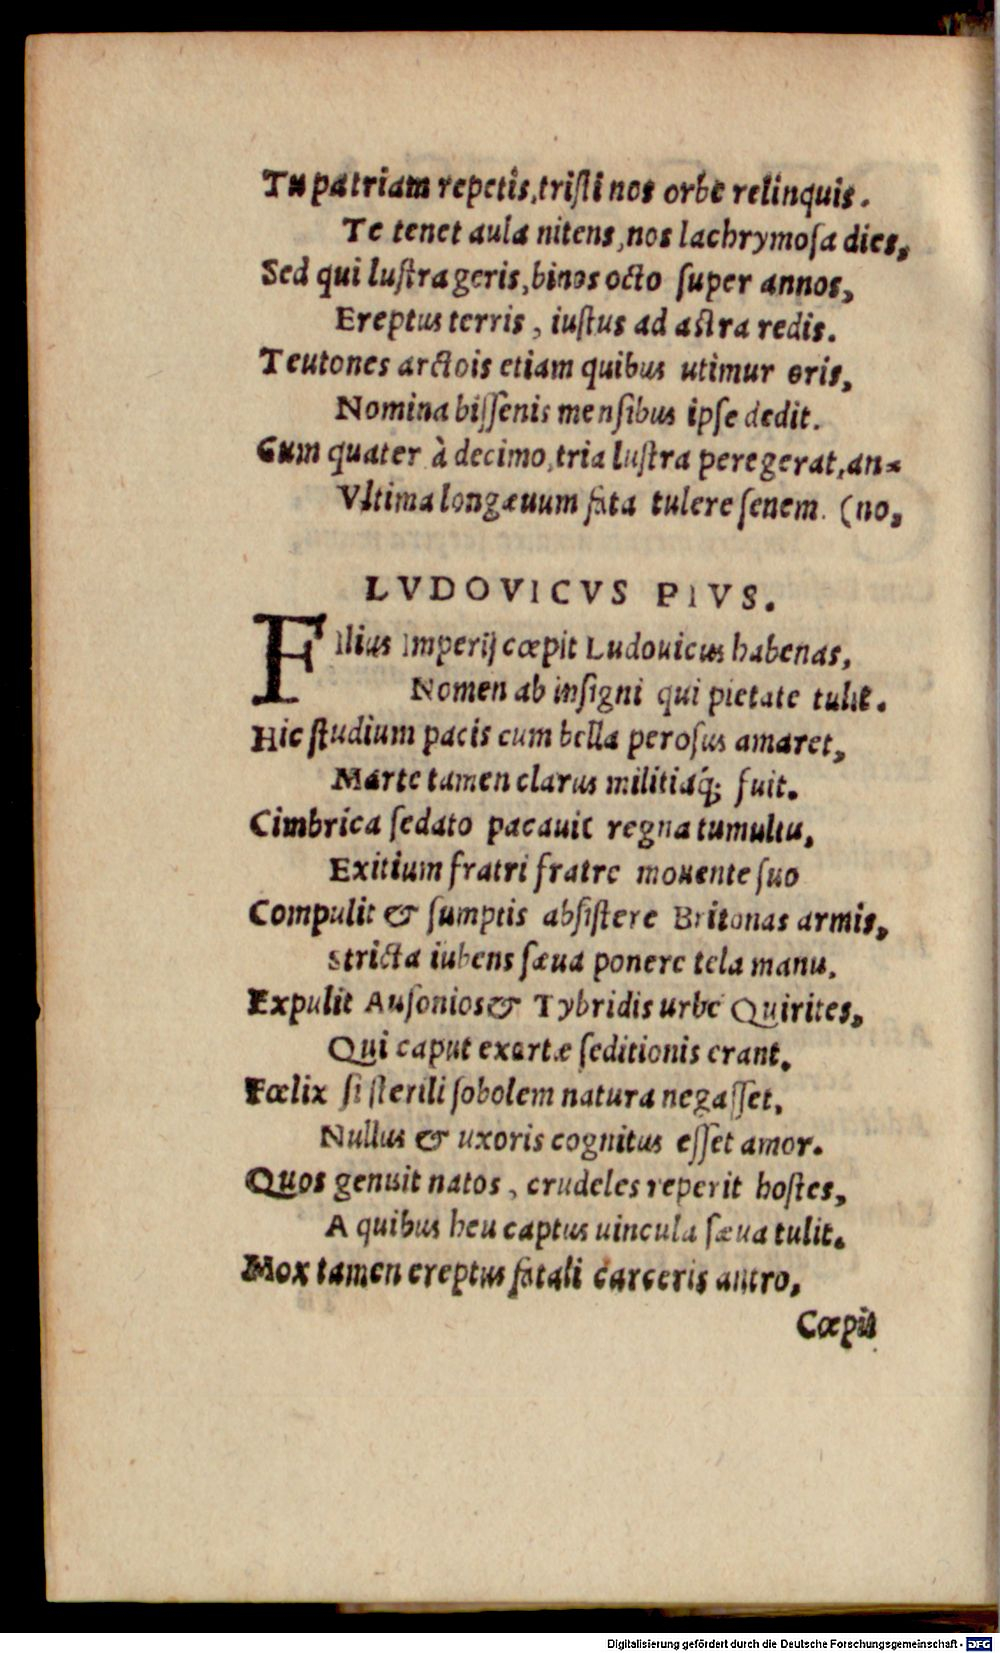 Tu patriam repetis, tristi nos orbe relinquis.
Te tenet aula nitens, nos lachrymosa dies,
Sed qui lustra geris, binos octo super annos,
Ereptus terris, iustus ad astra redis.
Teutones arctois etiam quibus utimur oris,
Nomina bissenis mensibus ipse dedit.
Cum quater à decimo, tria lustra peregerat, an-
Vltima longæuum fata tulere senem. (no,
LVDOVICVS PIVS.
Filius Imperij cœpit Ludouicus habenas,
Nomen ab insigni qui pietate tulit.
Hic studium pacis cum bella perosus amaret,
Marte tamen clarus militiáq; fuit.
Cimbrica sedato pacauit regna tumultu,
Exitium fratri fratre mouente suo
Compulit & sumptis absistere Britonas armis,
Stricta iubens sæua ponere tela manu.
Expulit Ausonios & Tybridis urbe Quirites,
Qui caput exortæ seditionis erant.
Fœlix si sterili sobolem natura negasset,
Nullus & uxoris cognitus esset amor.
Quos genuit natos, crudeles reperit hostes,
A quibus heu captus uincula sæua tulit.
Mox tamen ereptus fatali carceris antro,
Cœpit
Digitalisierung gefördert durch die Deutsche Forschungsgemeinschaft - DFG